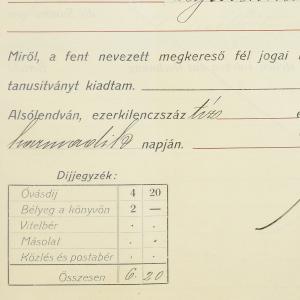 Miről, a fent nevezett megkereső fél jogai
tanusítványt kiadtam.
Alsólendván, ezerkilenczszáz tíz
harmadik napján.
Díjjegyzék:
Óvásdíj 4 20
Bélyeg a könyvön 2 —
Vitelbér . .
Másolat . .
Közlés és postabér . .
Összesen 6. 20